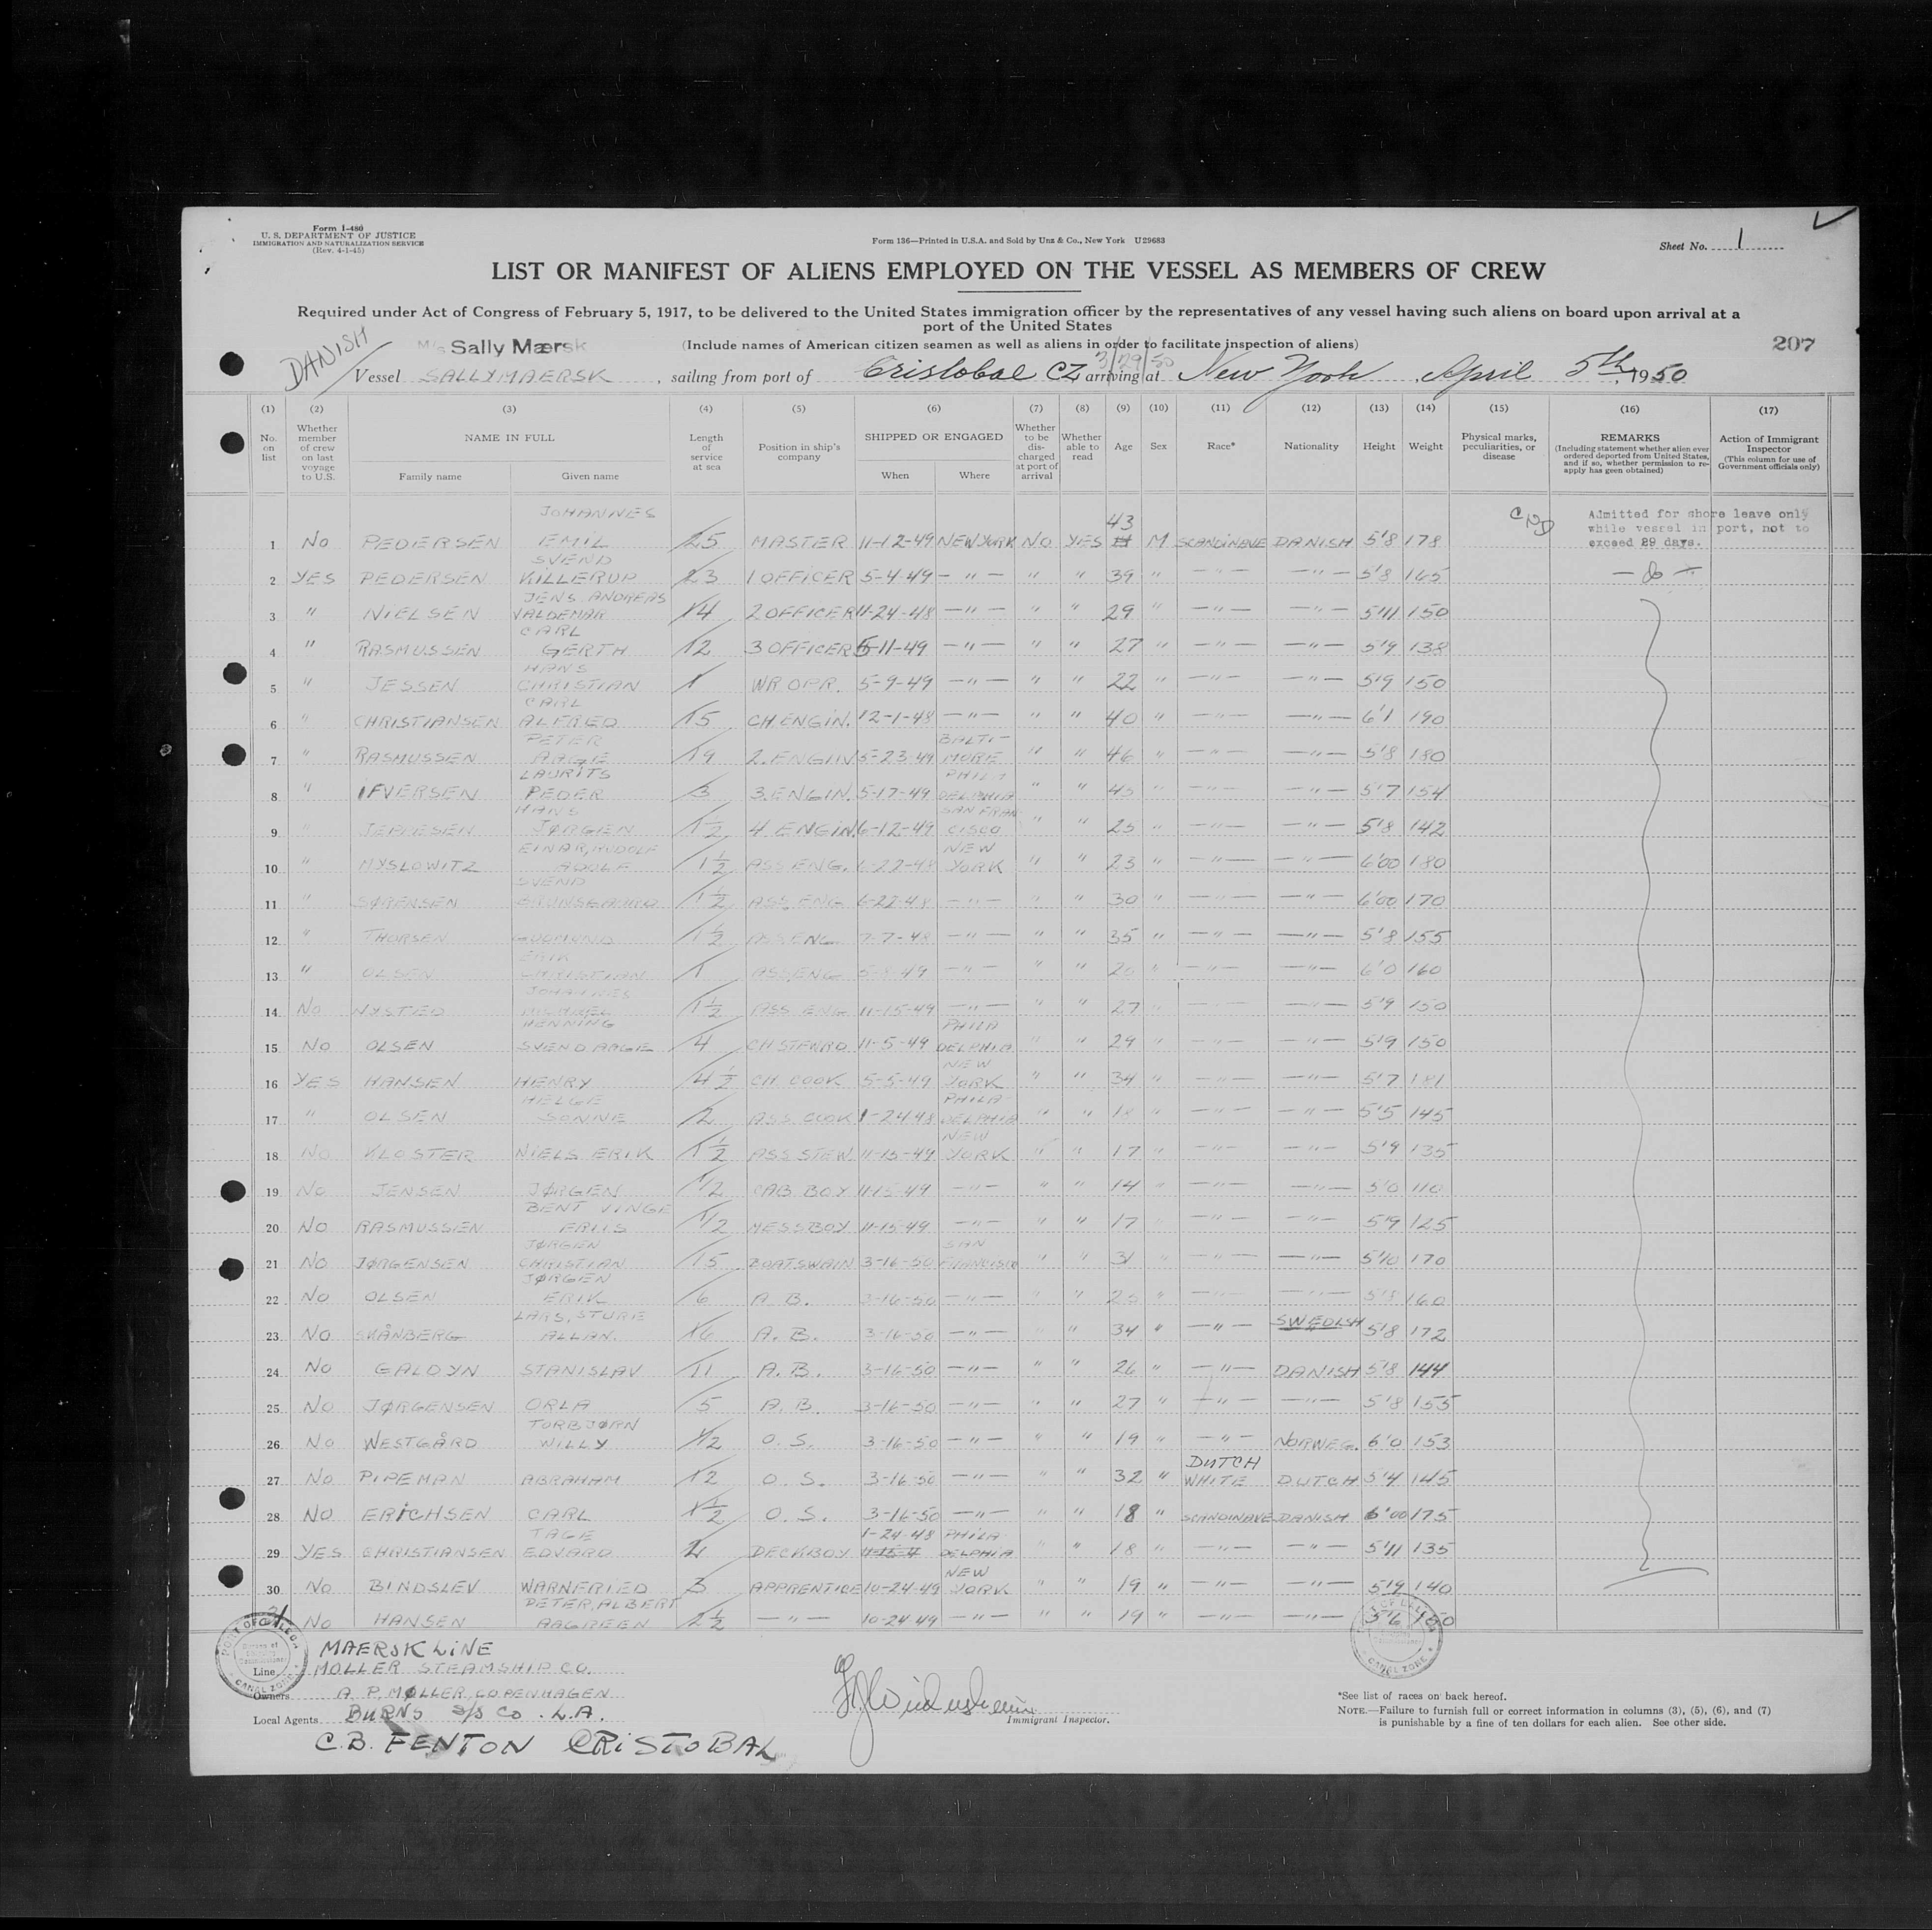 Form I-480
U. S. DEPARTMENT OF JUSTICE
IMMIGRATION AND NATURALIZATION SERVICE
(Rev. 4-1-45)
Form 136—Printed in U.S.A. and Sold by Unz & Co., New York U29683
Sheet No. 1
LIST OR MANIFEST OF ALIENS EMPLOYED ON THE VESSEL AS MEMBERS OF CREW
Required under Act of Congress of February 5, 1917, to be delivered to the United States immigration officer by the representatives of any vessel having such aliens on board upon arrival at a
port of the United States
(Include names of American citizen seamen as well as aliens in order to facilitate inspection of aliens)
207
DANISH
M/S Sally Mærsk
3/29/50
Vessel SALLY MAERSK, sailing from port of Cristobal CZ arriving at New York, April 5th, 1950
(1) (2) (3) (4) (5) (6) (7) (8) (9) (10) (11) (12) (13) (14) (15) (16) (17)
No. on list
Whether member of crew on last voyage to U.S.
NAME IN FULL
Family name
Given name
Length of service at sea
Position in ship's company
SHIPPED OR ENGAGED
When
Where
Whether to be discharged at port of arrival
Whether able to read
Age
Sex
Race*
Nationality
Height
Weight
Physical marks, peculiarities, or disease
REMARKS
(Including statement whether alien ever ordered deported from United States, and if so, whether permission to re-apply has geen obtained)
Action of Immigrant Inspector
(This column for use of Government officials only)
Admitted for shore leave only
while vessel in port, not to
exceed 29 days.
1 No PEDERSEN JOHANNES EMIL 25 MASTER 11-12-49 NEW YORK NO YES 43 M SCANDINAVE DANISH 5'8 178
2 YES PEDERSEN SVEND KILLERUP 23 1 OFFICER 5-4-49 —"— " " 39 " —"— —"— 5'8 165 — do —
3 " NIELSEN JENS ANDREAS VALDEMAR 14 2 OFFICER 11-24-48 —"— " " 29 " —"— —"— 5'11 150
4 " RASMUSSEN CARL GERTH 12 3 OFFICER 5-11-49 —"— " " 27 " —"— —"— 5'9 138
5 " JESSEN HANS CHRISTIAN 1 WR OPR. 5-9-49 —"— " " 22 " —"— —"— 5'9 150
6 " CHRISTIANSEN CARL ALFRED 15 CH. ENGIN. 12-1-48 —"— " " 40 " —"— —"— 6'1 190
7 " RASMUSSEN PETER AAGE 19 2. ENGIN 5-23-49 BALTIMORE " " 46 " —"— —"— 5'8 180
8 " IFVERSEN LAURITS PEDER 3 3. ENGIN. 5-17-49 PHILADELPHIA " " 45 " —"— —"— 5'7 154
9 " JEPPESEN HANS JØRGEN 1½ 4 ENGIN. 6-12-49 SAN FRANCISCO " " 25 " —"— —"— 5'8 142
10 " MYSLOWITZ EINAR, RUDOLF ADOLF 1½ ASS ENG. 6-22-48 NEW YORK " " 23 " —"— —"— 6'00 180
11 " SØRENSEN SVEND 1½ ASS. ENG 6-22-48 —"— " " 30 " —"— —"— 6'00 170
12 " THORSEN GUDMUND 1½ ASS ENG 7-7-48 —"— " " 35 " —"— —"— 5'8 155
13 " OLSEN ERIK CHRISTIAN 1 ASS ENG 5-8-49 —"— " " 20 " —"— —"— 6'0 160
14 No NYSTED JOHANNES MICHAEL 1½ ASS ENG 11-15-49 —"— " " 27 —"— —"— 5'9 150
15 No OLSEN HENNING SVEND AAGE 4 CH STEWRD 11-5-49 PHILADELPHIA " " 29 " —"— —"— 5'9 150
16 YES HANSEN HENRY 4½ CH. COOK 5-5-49 NEW YORK " " 34 " —"— —"— 5'7 181
17 " OLSEN HELGE SONNE 2 ASS COOK 1-24 48 PHILADELPHIA " " 18 " —"— —"— 5'5 145
18 No KLOSTER NIELS ERIK 1½ ASS STEW. 11-15-49 NEW YORK " " 17 " —"— —"— 5'9 135
19 No JENSEN JØRGEN 1/2 CAB BOY 11-15-49 —"— " " 14 " —"— —"— 5'0 110
20 No RASMUSSEN BENT VINGE FRIIS 1/2 MESSBOY 11-15-49 —"— " " 17 —"— —"— 5'9 125
21 No JØRGENSEN JØRGEN CHRISTIAN 15 BOATSWAIN 3-16-50 SAN FRANCISCO " " 31 " —"— —"— 5'10 170
22 No OLSEN JØRGEN ERIK 6 A. B. 3-16-50 —"— " " 25 " —"— —"— 5'8 160
23 No SKÅNBERG LARS, STURE ALLAN. 16 A. B. 3-16-50 —"— " " 34 " —"— SWEDISH 5'8 172
24 No GALDYN STANISLAV 11 A. B. 3-16-50 —"— " " 26 " —"— DANISH 5'8 144
25 No JØRGENSEN ORLA 5 A. B. 3-16-50 —"— " " 27 " —"— —"— 5'8 155
26 No WESTGÅRD TORBJØRN WILLY 1/2 O. S. 3-16-50 —"— " " 19 " —"— NORWEG. 6'0 153
27 No PIPEMAN ABRAHAM 12 O. S. 3-16-50 —"— " " 32 " DUTCH WHITE DUTCH 5'4 145
28 No ERICHSEN CARL 1½ O. S. 3-16-50 —"— " " 18 " SCANDINAVE DANISH 6'00 175
29 YES CHRISTIANSEN TAGE EDVARD 2 DECKBOY 1-24-48 PHILADELPHIA " " 18 " —"— —"— 5'11 135
30 No BINDSLEV WARNFRIED 3 APPRENTICE 10-24-49 NEW YORK " " 19 " —"— —"— 5'9 140
31 No HANSEN PETER, ALBERT AAGREEN 2½ —"— 10-24-49 —"— " " 19 " —"— —"— 5'6 150
MAERSK LINE
Line MOLLER STEAMSHIP CO.
Owners A. P. MØLLER, COPENHAGEN
Local Agents BURNS S/S CO. L.A.
C.B. FENTON CRISTOBAL
Immigrant Inspector.
*See list of races on back hereof.
NOTE.—Failure to furnish full or correct information in columns (3), (5), (6), and (7)
is punishable by a fine of ten dollars for each alien. See other side.